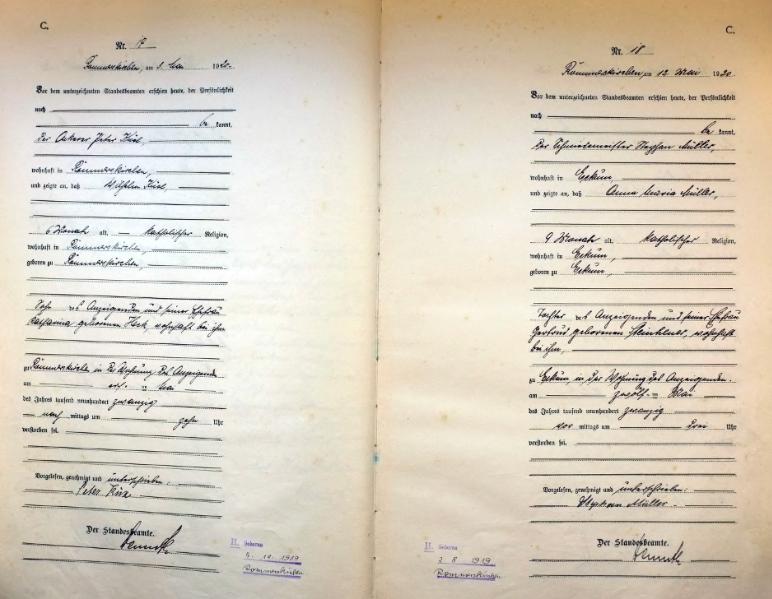 C.
Nr. 17
Rommerskirchen, am 3. Mai 1920.
Vor dem unterzeichneten Standesbeamten erschien heute, der Persönlichkeit
nach
be kannt,
Der Ackerer Peter
wohnhaft in Rommerskirchen,
und zeigte an, daß Wilhelm
6 Monat alt, katholischer Religion,
wohnhaft in Rommerskirchen,
geboren zu Rommerskirchen,
Sohn des Anzeigenden und seiner Ehefrau
Katharina geborenen wohnhaft bei ihm
zu Rommerskirchen in der Wohnung des Anzeigenden
am Mai
des Jahres tausend neunhundert zwanzig
nach mittags um zehn Uhr
verstorben sei.
Vorgelesen, genehmigt und unterschrieben.
Peter
Der Standesbeamte.
II. Geboren
12 1919
Rommerskirchen
C.
Nr. 18
Rommerskirchen, am 12. Mai 1920
Vor dem unterzeichneten Standesbeamten erschien heute, der Persönlichkeit
nach
be kannt,
Der Schmiedemeister Stephan Müller,
wohnhaft in Eckum,
und zeigte an, daß Anna Maria Müller,
9 Monat alt, katholischer Religion,
wohnhaft in Eckum,
geboren zu Eckum,
Tochter des Anzeigenden und seiner Ehefrau
Gertrud geborenen wohnhaft
bei ihm,
zu Eckum, in der Wohnung des Anzeigenden.
am zwölf Mai
des Jahres tausend neunhundert zwanzig
vor mittags um drei Uhr
verstorben sei.
Vorgelesen, genehmigt und unterschrieben.
Stephan Müller.
Der Standesbeamte.
II. Geboren
2 8 1919
Rommerskirchen